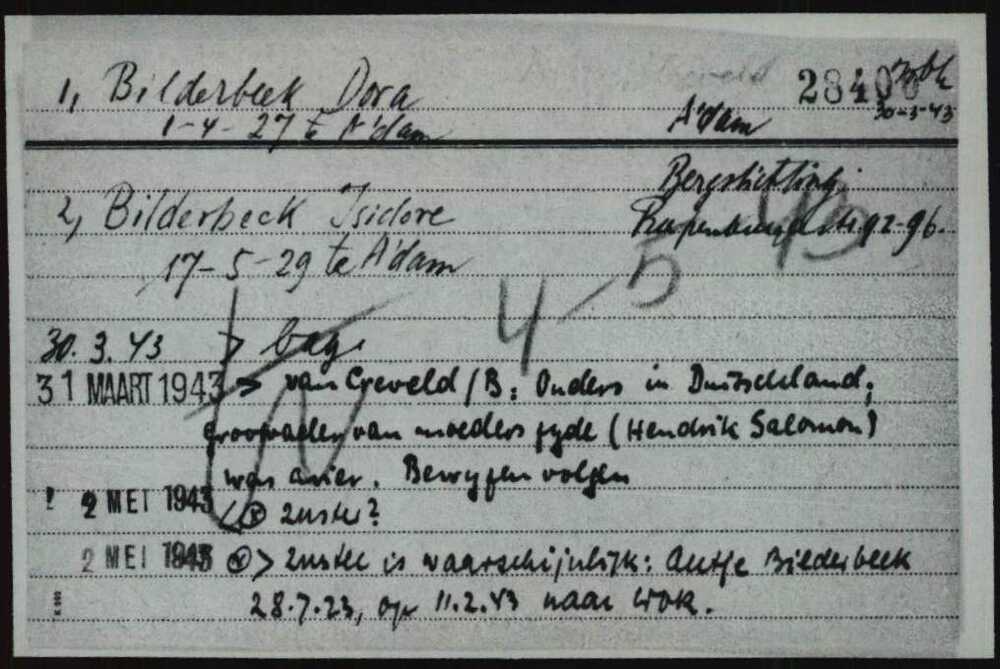 1, Bilderbeek Dora 28406 Wbk
1-4-27 te A'dam A'dam 30-3-43
Bergstichting.
2, Bilderbeek Isidore 92-96.
17-5-29 te A'dam
4-5 43
30.3.43 > bag.
31 MAART 1943 > van Creveld/B: Ouders in Duitschland;
grootvader van moeders zyde (Hendrik Salomon)
was arier. Bewyzen volgen
! 2 MEI 1943 (x) zuster?
2 MEI 1943 (x) > zuster is waarschijnlijk: Aultje Biederbeek
28.7.23, op 11.2.43 naar Wbk.